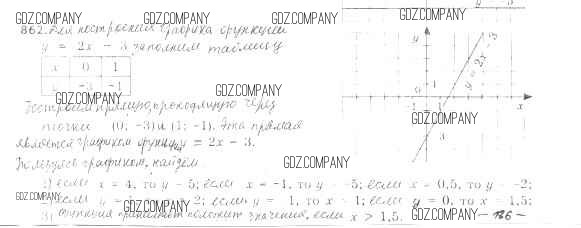 GDZ.COMPANY GDZ.COMPANY GDZ.COMPANY GDZ.COMPANY
862. Для построения графика функции
y = 2x - 3 заполним таблицу
x 0 1
y -3 -1
GDZ.COMPANY
GDZ.COMPANY
Построим прямую, проходящую через
точки (0; -3) и (1; -1). Эта прямая
является графиком функции y = 2x - 3.
GDZ.COMPANY
Пользуясь графиком, найдем
GDZ.COMPANY
1) если x = 4, то y = 5; если x = -1, то y = -5; если x = 0,5, то y = -2;
GDZ.COMPANY
2) если y = 1, то x = 2; если y = -1, то x = 1; если y = 0, то x = 1,5;
GDZ.COMPANY
3) функция принимает положит значения, если x > 1,5.
GDZ.COMPANY
- 126 -
y
1
0
-1 1
3
x
y = 2x - 3